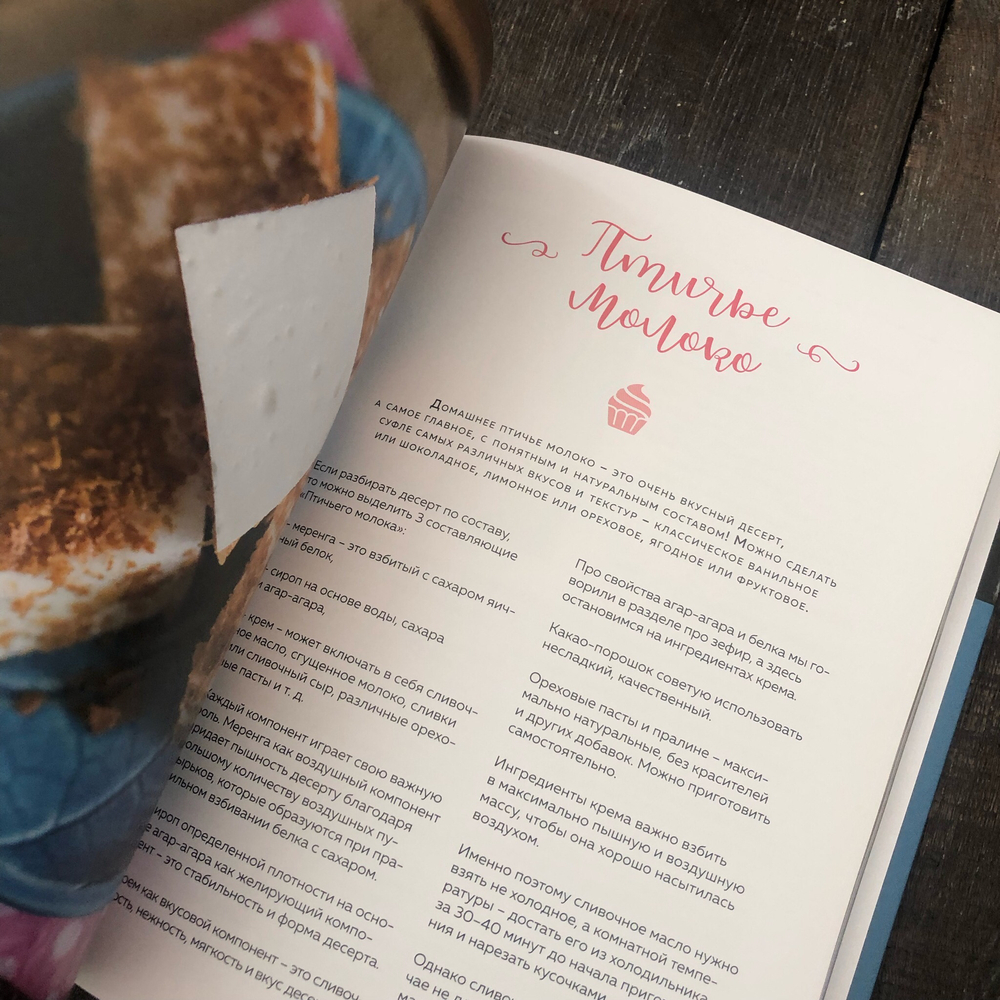 Птичье
молоко
Домашнее птичье молоко – это очень вкусный десерт,
а самое главное, с понятным и натуральным составом! Можно сделать
суфле самых различных вкусов и текстур – классическое ванильное
или шоколадное, лимонное или ореховое, ягодное или фруктовое.
Если разбирать десерт по составу,
то можно выделить 3 составляющие
«Птичьего молока»:
– меренга – это взбитый с сахаром яич-
ный белок,
– сироп на основе воды, сахара
и агар-агара,
– крем – может включать в себя сливоч-
ное масло, сгущенное молоко, сливки
или сливочный сыр, различные орехо-
вые пасты и т. д.
Каждый компонент играет свою важную
роль. Меренга как воздушный компонент
придает пышность десерту благодаря
большому количеству воздушных пу-
зырьков, которые образуются при пра-
вильном взбивании белка с сахаром.
Сироп определенной плотности на осно-
ве агар-агара как желирующий компо-
нент – это стабильность и форма десерта.
Крем как вкусовой компонент – это сливоч-
ность, нежность, мягкость и вкус десер
Про свойства агар-агара и белка мы го-
ворили в разделе про зефир, а здесь
остановимся на ингредиентах крема.
Какао-порошок советую использовать
несладкий, качественный.
Ореховые пасты и пралине – макси-
мально натуральные, без красителей
и других добавок. Можно приготовить
самостоятельно.
Ингредиенты крема важно взбить
в максимально пышную и воздушную
массу, чтобы она хорошо насытилась
воздухом.
Именно поэтому сливочное масло нужно
взять не холодное, а комнатной темпе-
ратуры – достать его из холодильника
за 30–40 минут до начала пригот
ния и нарезать кусочками
Однако сливо
чае не д